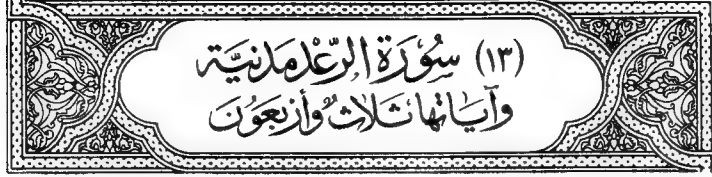 (١٣) سُوْرَة الرَّعْد مَدَنيَّة
وَآيَاتُهَا ثَلَاثٌ وَأَرْبَعُونَ